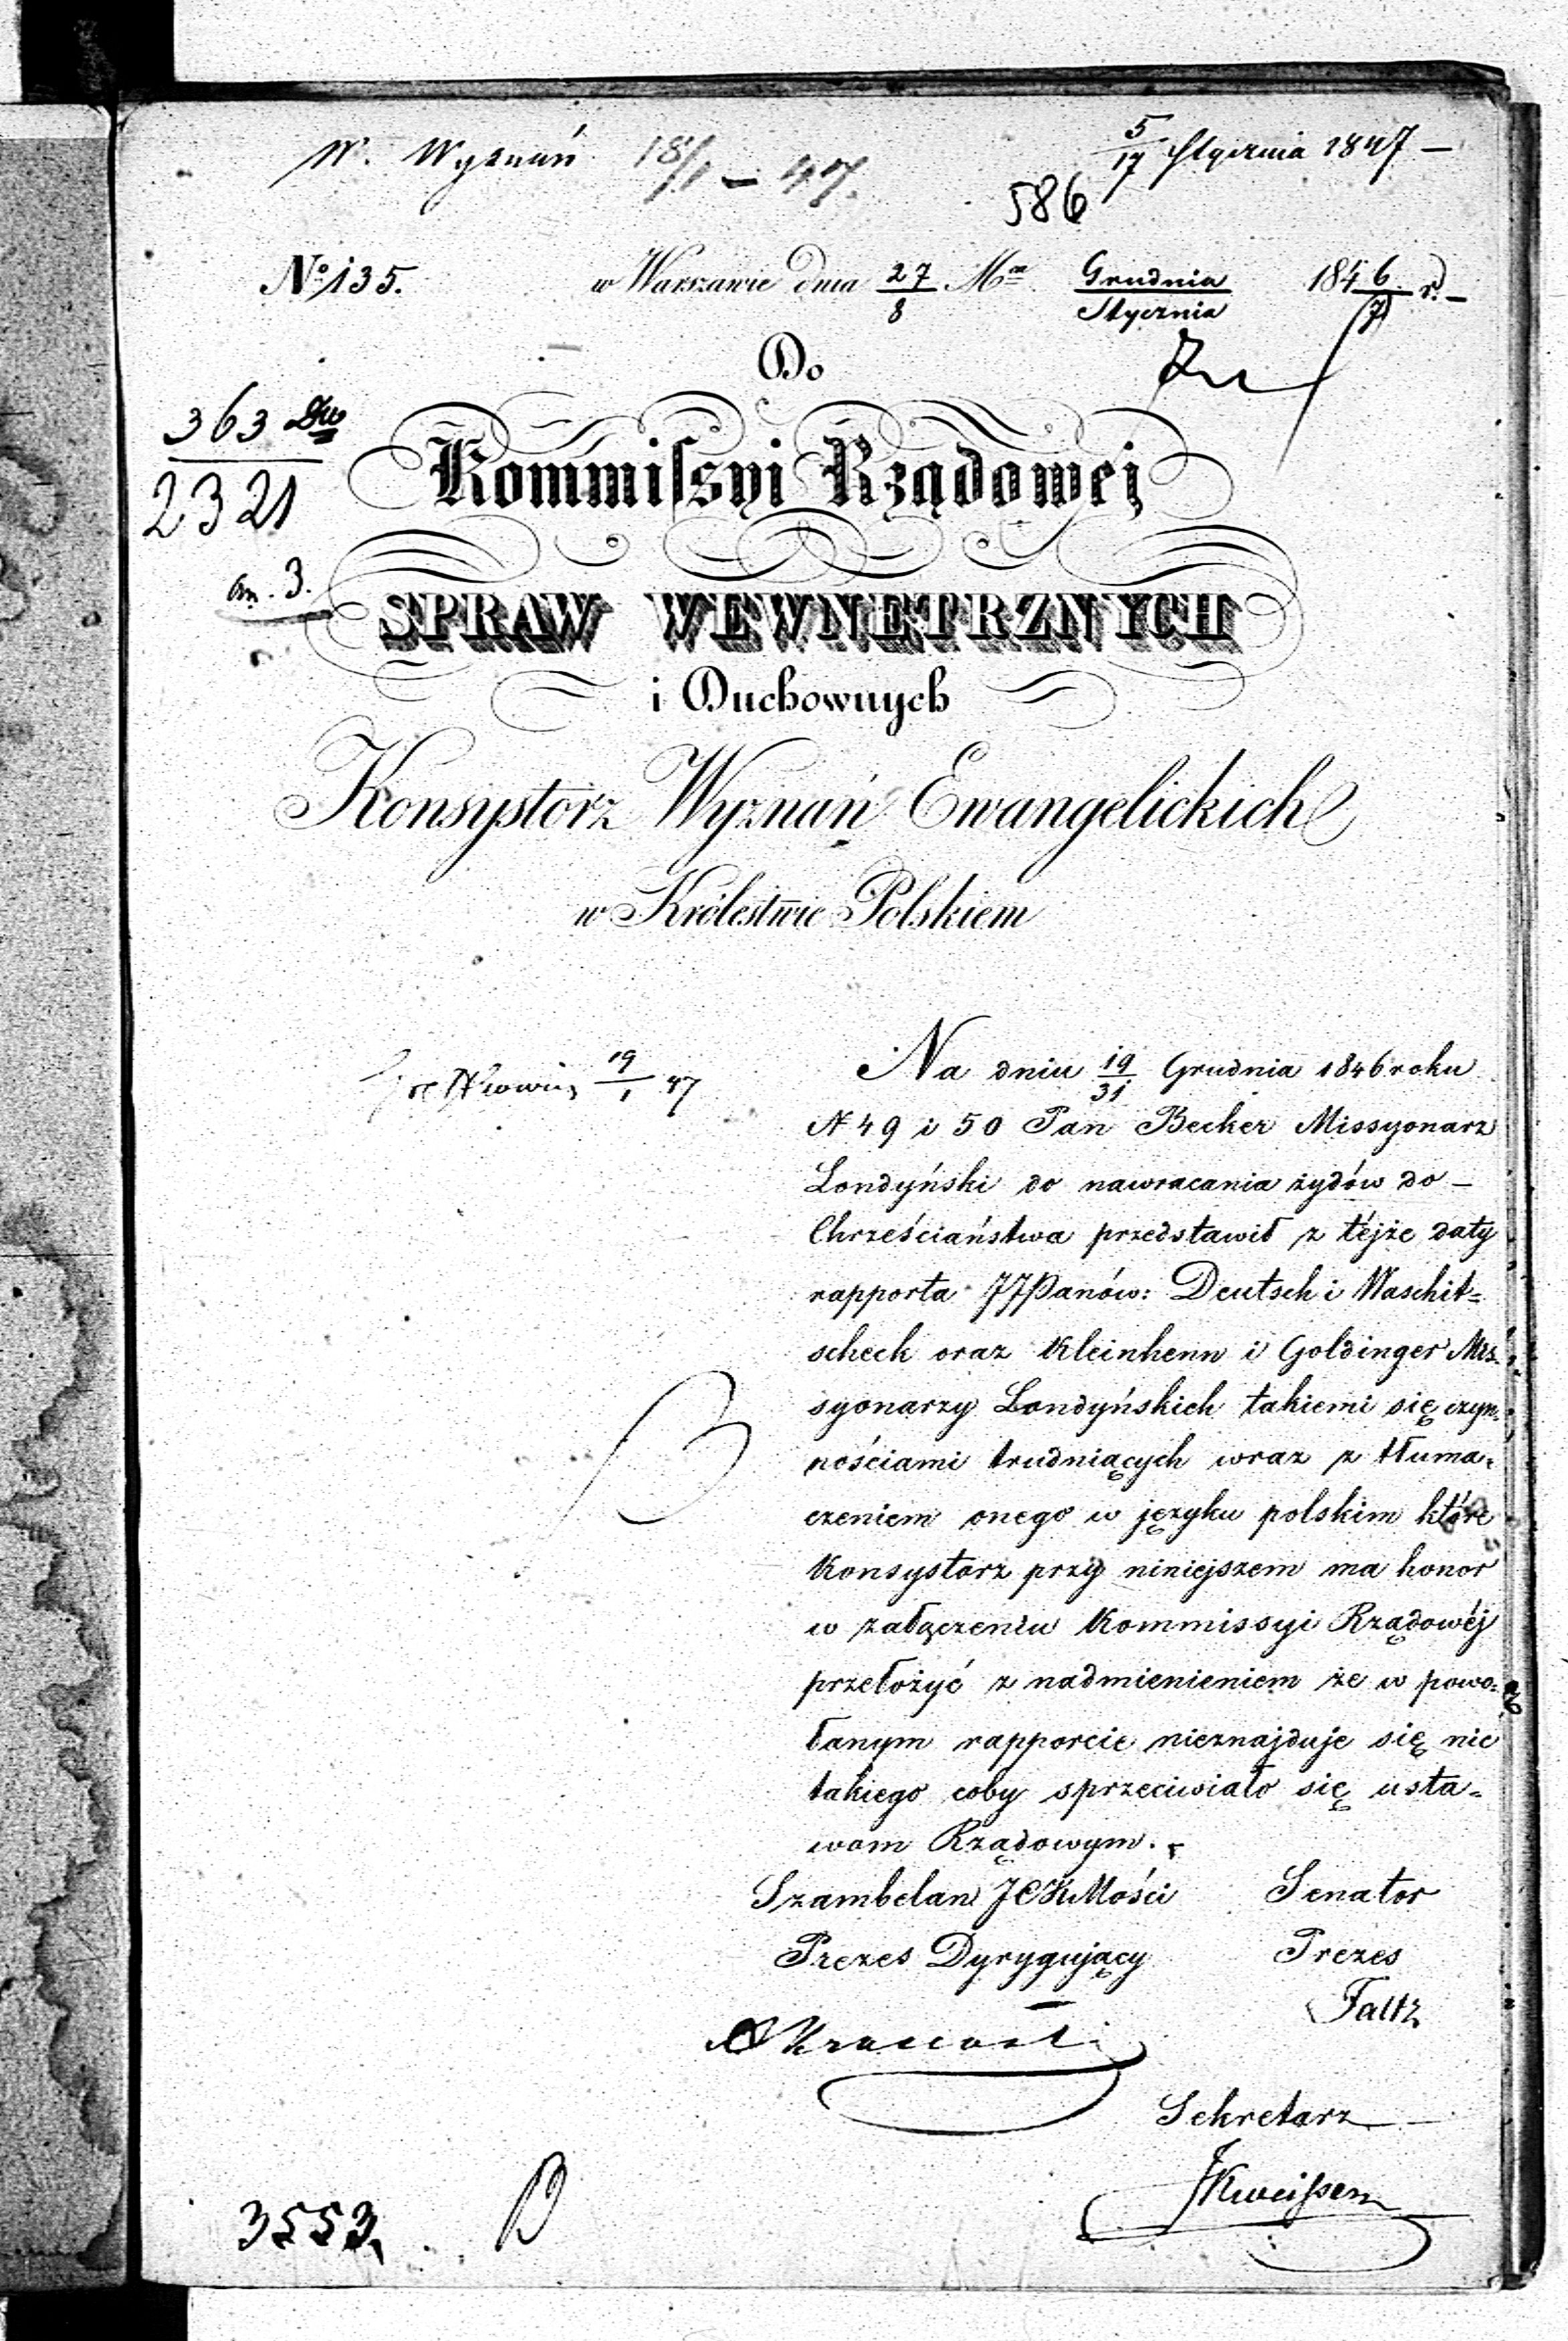 W. Wyznań 18/1 – 47.
5/17 Stycznia 1847 –
586
No 135. w Warszawie dnia 27/8 Mca Grudnia/Stycznia 1846/(7) r. –
Do
363 Dw
2321
Kommiſsyi Rządowej
an. 3.
SPRAW WEWNĘTRZNYCH
i Duchownych
Konsystorz Wyznań Ewangelickich
w Królestwie Polskiem
19/1 47
Na dniu 19/31 Grudnia 1846 roku
N 49 i 50 Pan Becker Missyonarz
Londyński do nawracania żydów do –
Chrześciaństwa przedstawił z téjże daty
rapporta JJPanów: Deutsch i Waschit=
scheck oraz Kleinhenn i Goldinger Mis-
syonarzy Londyńskich takiemi się czyn=
nościami trudniących wraz z tłuma=
czeniem onego w języku polskim które
Konsystorz przy niniejszem ma honor
w załączeniu Kommissyi Rządowéj
przełożyć z nadmienieniem że w powo=
łanym rapporcie nieznajduje się nic
takiego coby sprzeciwiało się usta=
wom Rządowym.
Szambelan JCKMości Senator
Prezes Dyrygujący Prezes
Faltz
Sekretarz
3553.